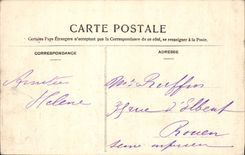 CARTE POSTALE
Certains Pays Étrangers n'acceptent pas la Correspondance de ce côté, se renseigner à la Poste.
CORRESPONDANCE
ADRESSE
Amitiés
Hélène
Ruffin
35 rue d'Elbeuf
Rouen
Seine inférieure